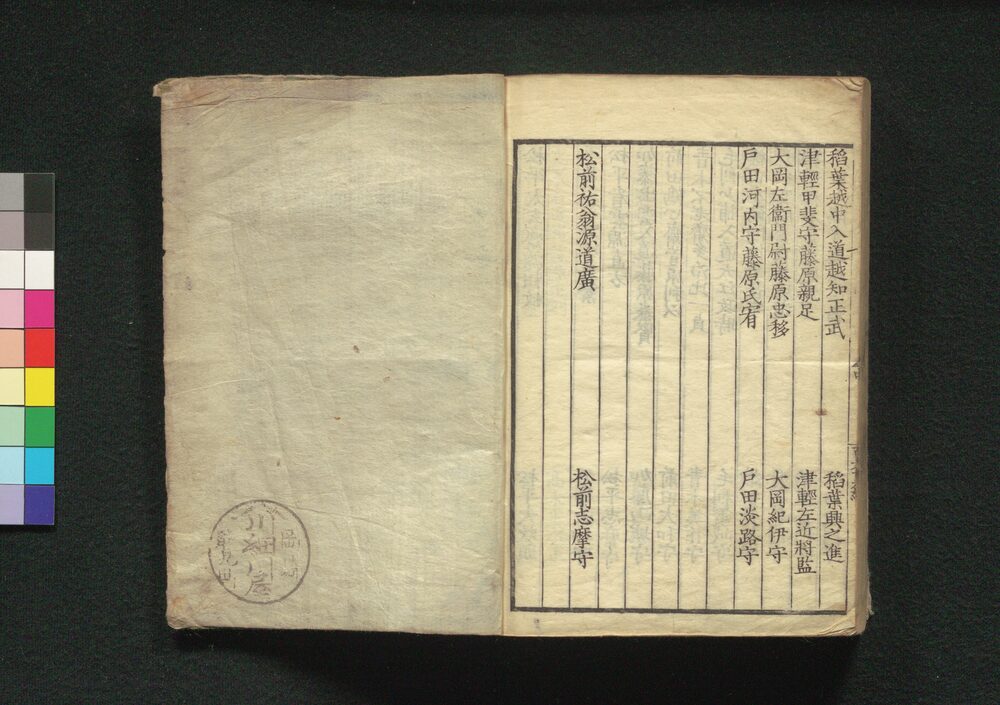 稻葉越中入道越知正武
稻葉興之進
津輕甲斐守藤原親足
津輕左近將監
大岡左衞門尉藤原忠移
大岡紀伊守
戸田河内守藤原氏宥
戸田淡路守
松前祐翁源道廣
松前志摩守